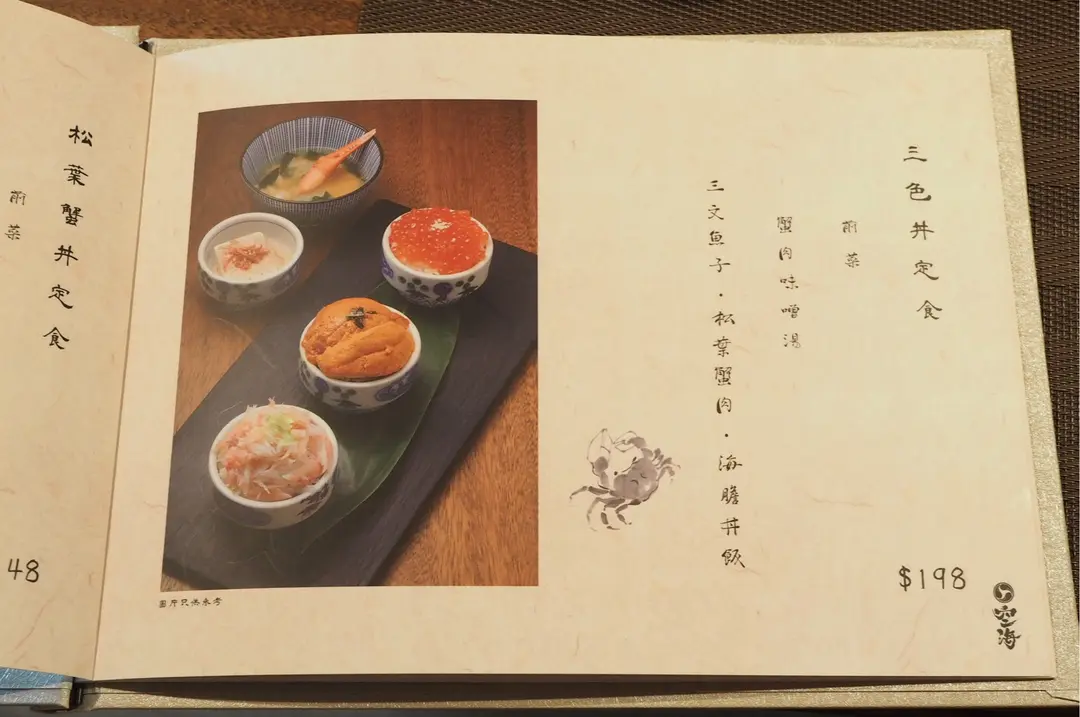 三色丼定食
前菜
蟹肉味噌湯
三文魚子・松葉蟹肉・海膽丼飯
$198
空海
圖片只供參考
松葉蟹丼定食
前菜
48